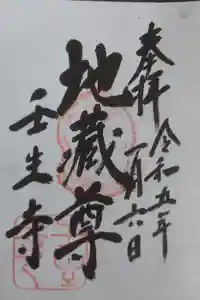 奉拝
令和五年
一月六日
地蔵尊
壬生寺